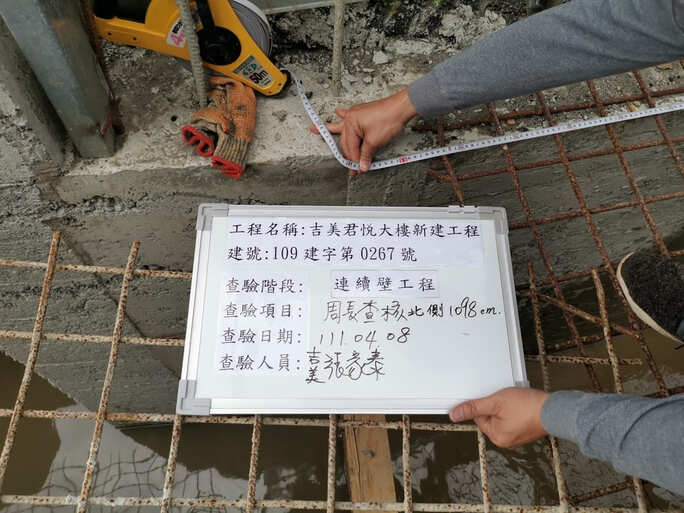 50m
工程名稱:吉美君悅大樓新建工程
建號:109建字第0267號
查驗階段: 連續壁工程
查驗項目: 周長查核北側1098cm.
查驗日期: 111.04.08
查驗人員: 吉美張